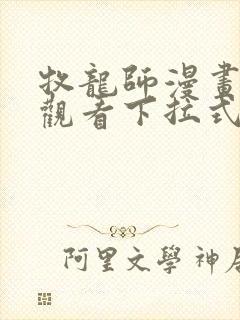 牧龍師漫畫
觀看下拉式
阿里文學 神居